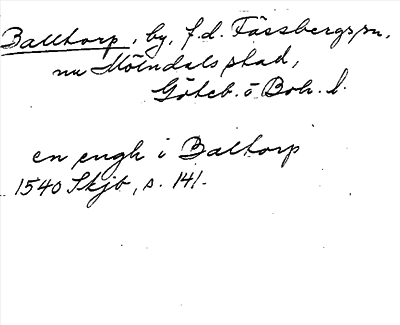 Balltorp, by, f.d. Fässbergs sn,
nu Mölndals stad,
Göteb. o Boh. l.
en engh i Baltorp
1540 Skjb, s. 141.